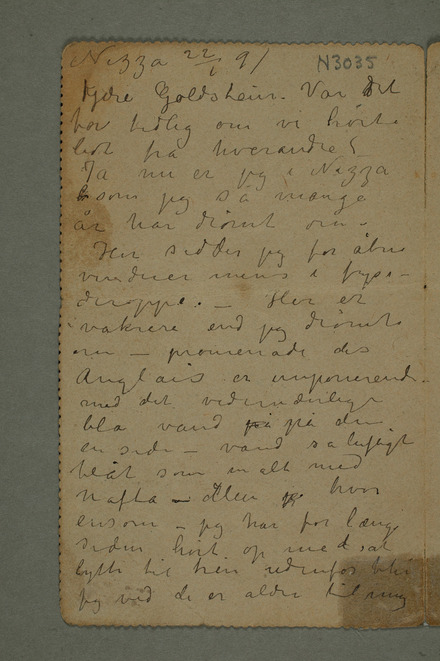 Nizza 22/1 91
N3035
Kjære Goldstein. Var det
før tidlig om vi hørte
lidt fra hverandre?
Ja nu er jeg i Nizza
som jeg så mange
år har drømt om –
Her sidder jeg for åbne
vinduer mens i fryse
deroppe. – Her er
vakrere end jeg drømte
om – promenade des
Anglais er imponerende
med det vidunderlige
blå vand på den
en side – vand så luftigt
blåt som
Nafta – Men hvor
ensom – jeg har for længe
siden hørt op med at
lytte til trin udenfor
jeg ved de er aldri til mig